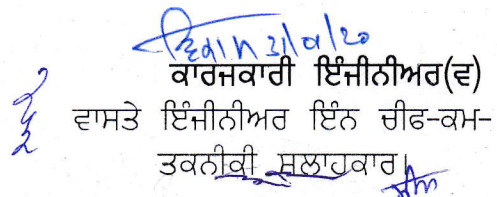 ਕਾਰਜਕਾਰੀ ਇੰਜੀਨੀਅਰ(ਵ)
ਵਾਸਤੇ ਇੰਜੀਨੀਅਰ ਇੰਨ ਚੀਫ-ਕਮ-
ਤਕਨੀਕੀ ਸਲਾਹਕਾਰ।